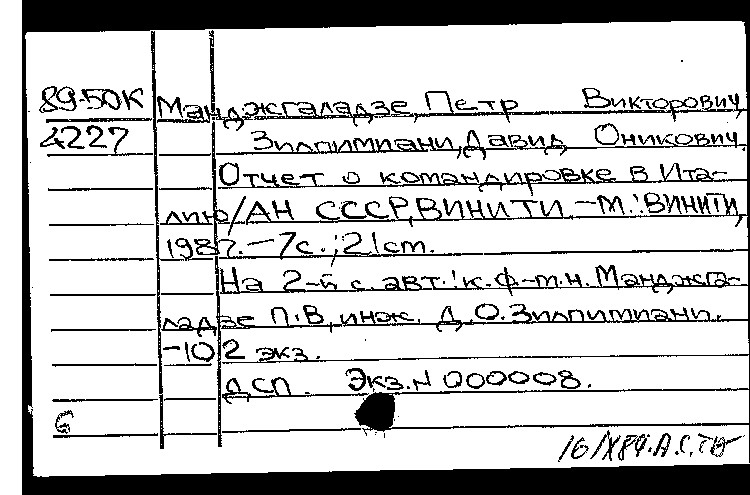 89-50К Манджгаладзе, Петр Викторович,
4227 Зилпимиани, Давид Оникович.
Отчет о командировке в Ита-
лию/АН СССР, ВИНИТИ. -М.: ВИНИТИ,
1987. - 7с.; 21ст.
На 2-й с. авт.: к.ф-м.н. Манджга-
ладзе П.В., инж. Д.О.Зилпимиани.
-10 2 экз.
ДСП. Экз.N 000008.
6
16/X89.